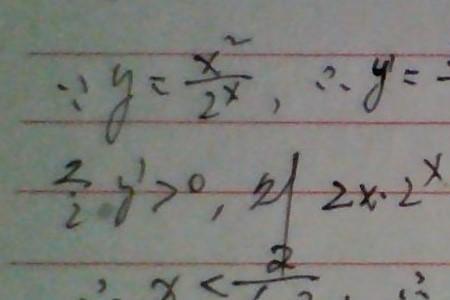 ∵ y = x²/2ˣ , ∴ y' =
令 y' > 0 , 则 2x·2ˣ
x < 2/